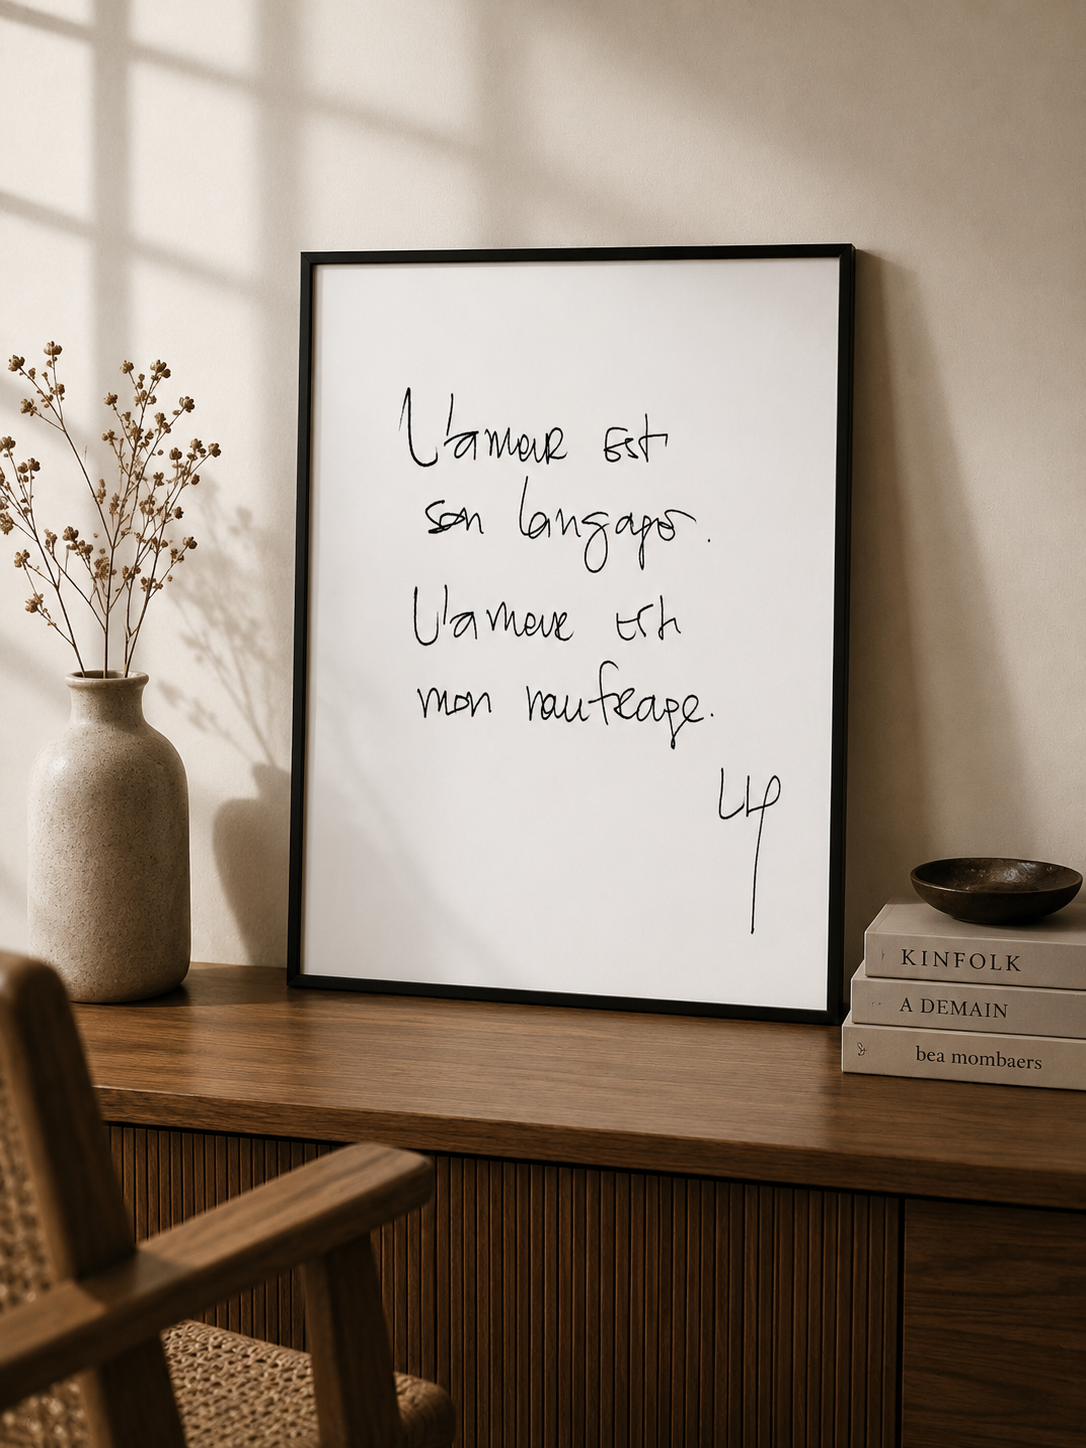 L'amour est
son langage.
L'amour est
mon naufrage.
LHP
KINFOLK
A DEMAIN
bea mombaers